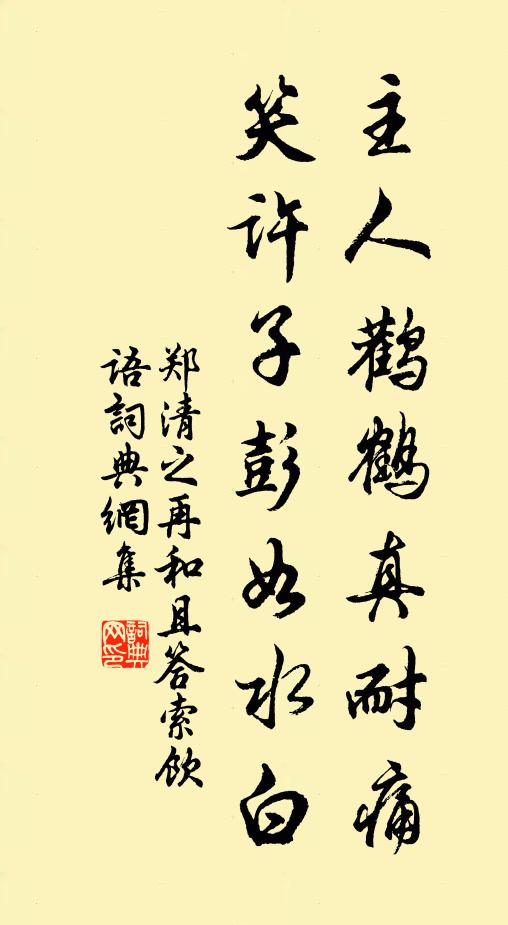 主人鹳鹤真耐痛
笑许子彭如水白
郑清之再和且答索飲
语詞典網集
詞典
网印